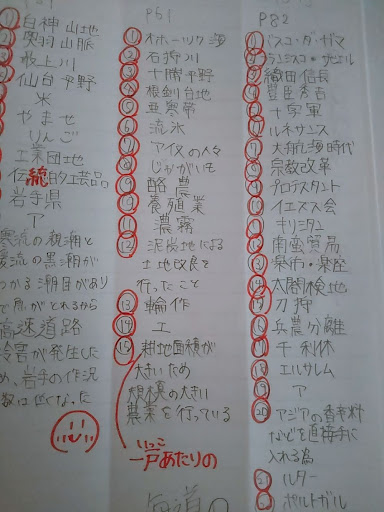 ① 白神山地
奥羽山脈
③ 最上川
仙台平野
米
やませ
りんご
工業団地
伝統的工芸品
岩手県
ア
寒流の親潮と
暖流の黒潮が
つかる潮目があり
で魚がとれるから
高速道路
冷害が発生した
め、岩手の作況
数は低くなった
P61
① オホーツク海
② 石狩川
③ 十勝平野
④ 根釧台地
⑤ 亜寒帯
⑥ 流氷
⑦ アイヌの人々
⑧ じゃがいも
⑨ 酪農
⑩ 養殖業
⑪ 濃霧
⑫ 泥炭地による
土地改良を
行ったこと
⑬ 輪作
⑭ エ
⑮ 耕地面積が
大きいため
規模の大きい
農業を行っている
いっこ
一戸あたりの
P82
① バスコ・ダ・ガマ
② フランシスコ・ザビエル
③ 織田信長
④ 豊臣秀吉
⑤ 十字軍
⑥ ルネサンス
⑦ 大航海時代
⑧ 宗教改革
⑨ プロテスタント
⑩ イエズス会
⑪ キリシタン
⑫ 南蛮貿易
⑬ 楽市・楽座
⑭ 太閤検地
⑮ 刀狩
⑯ 兵農分離
⑰ 千利休
⑱ エルサレム
⑲ ア
⑳ アジアの香辛料
などを直接手に
入れる為
㉑ ルター
㉒ ポルトガル